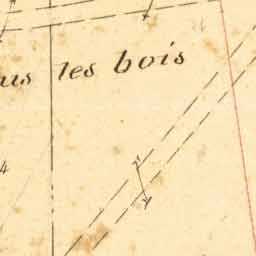 us les bois
4